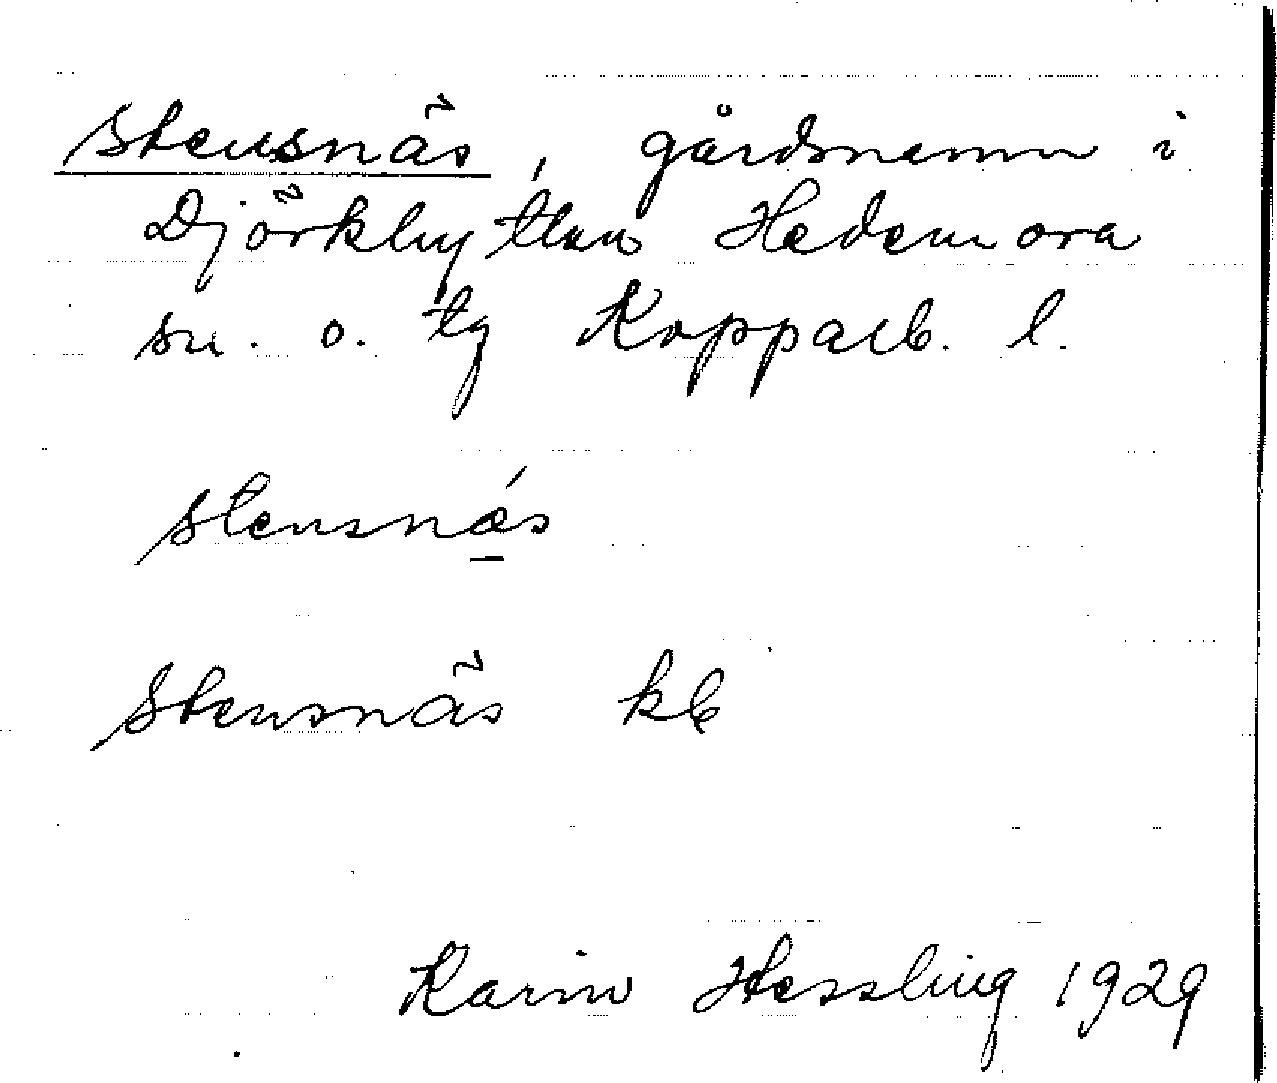 Stensnäs, gårdsnamn i
Djörkhyttan Hedemora
sn. o. tg Kopparb. l.
stensnæ´s
Stensnäs kb
Karin Hessling 1929